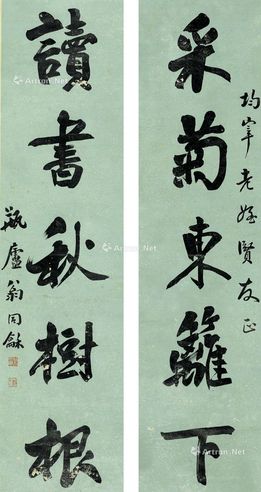 均宰老姪賢友正
采菊東籬下
讀書秋樹根
瓶廬翁同龢
Artron.Net
Artron.Net
Artron.Net
Artron.Net